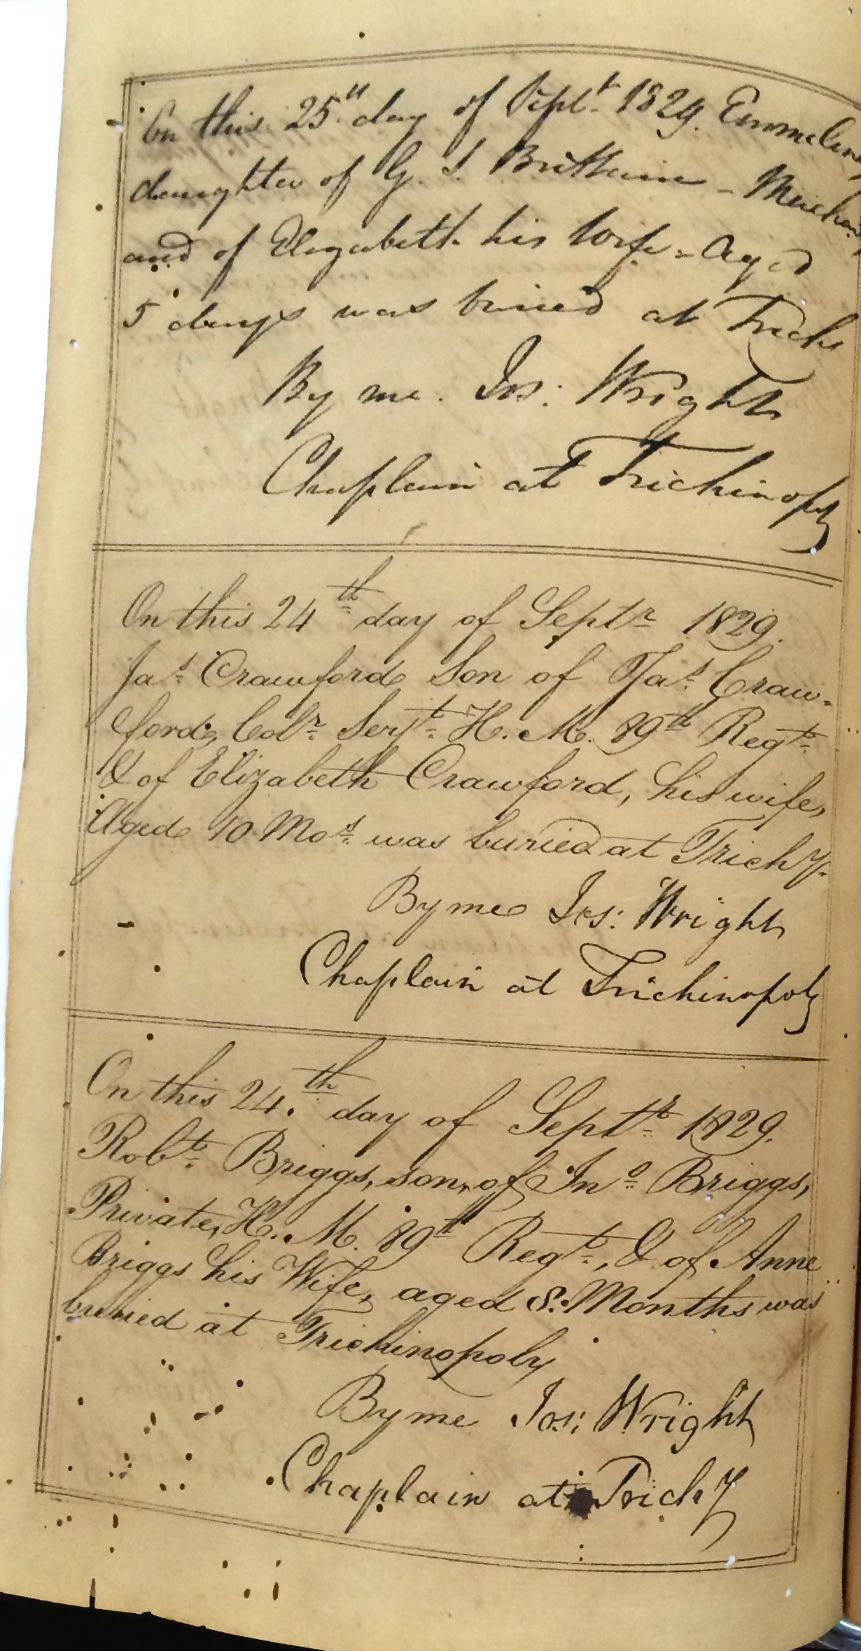 On this 25th day of Sept. 1829. Emmeline
daughter of G. S. Brittain - Merchant
and of Elizabeth his Wife - aged
5 days was buried at Trichy
By me. Jos: Wright
Chaplain at Trichinopoly
On this 24th day of Septr 1829.
Jas Crawford Son of Jas Craw-
ford, Colr Serjt H. M. 89th Regt
& of Elizabeth Crawford, his wife,
Aged 10 Mos was buried at Trichy.
By me Jos: Wright
Chaplain at Trichinopoly
On this 24th day of Septr 1829.
Robt Briggs, son, of Jno Briggs,
Private, H. M. 89th Regt, & of Anne
Briggs his Wife, aged 8 Months was
buried at Trichinopoly
By me Jos: Wright
Chaplain at Trichy